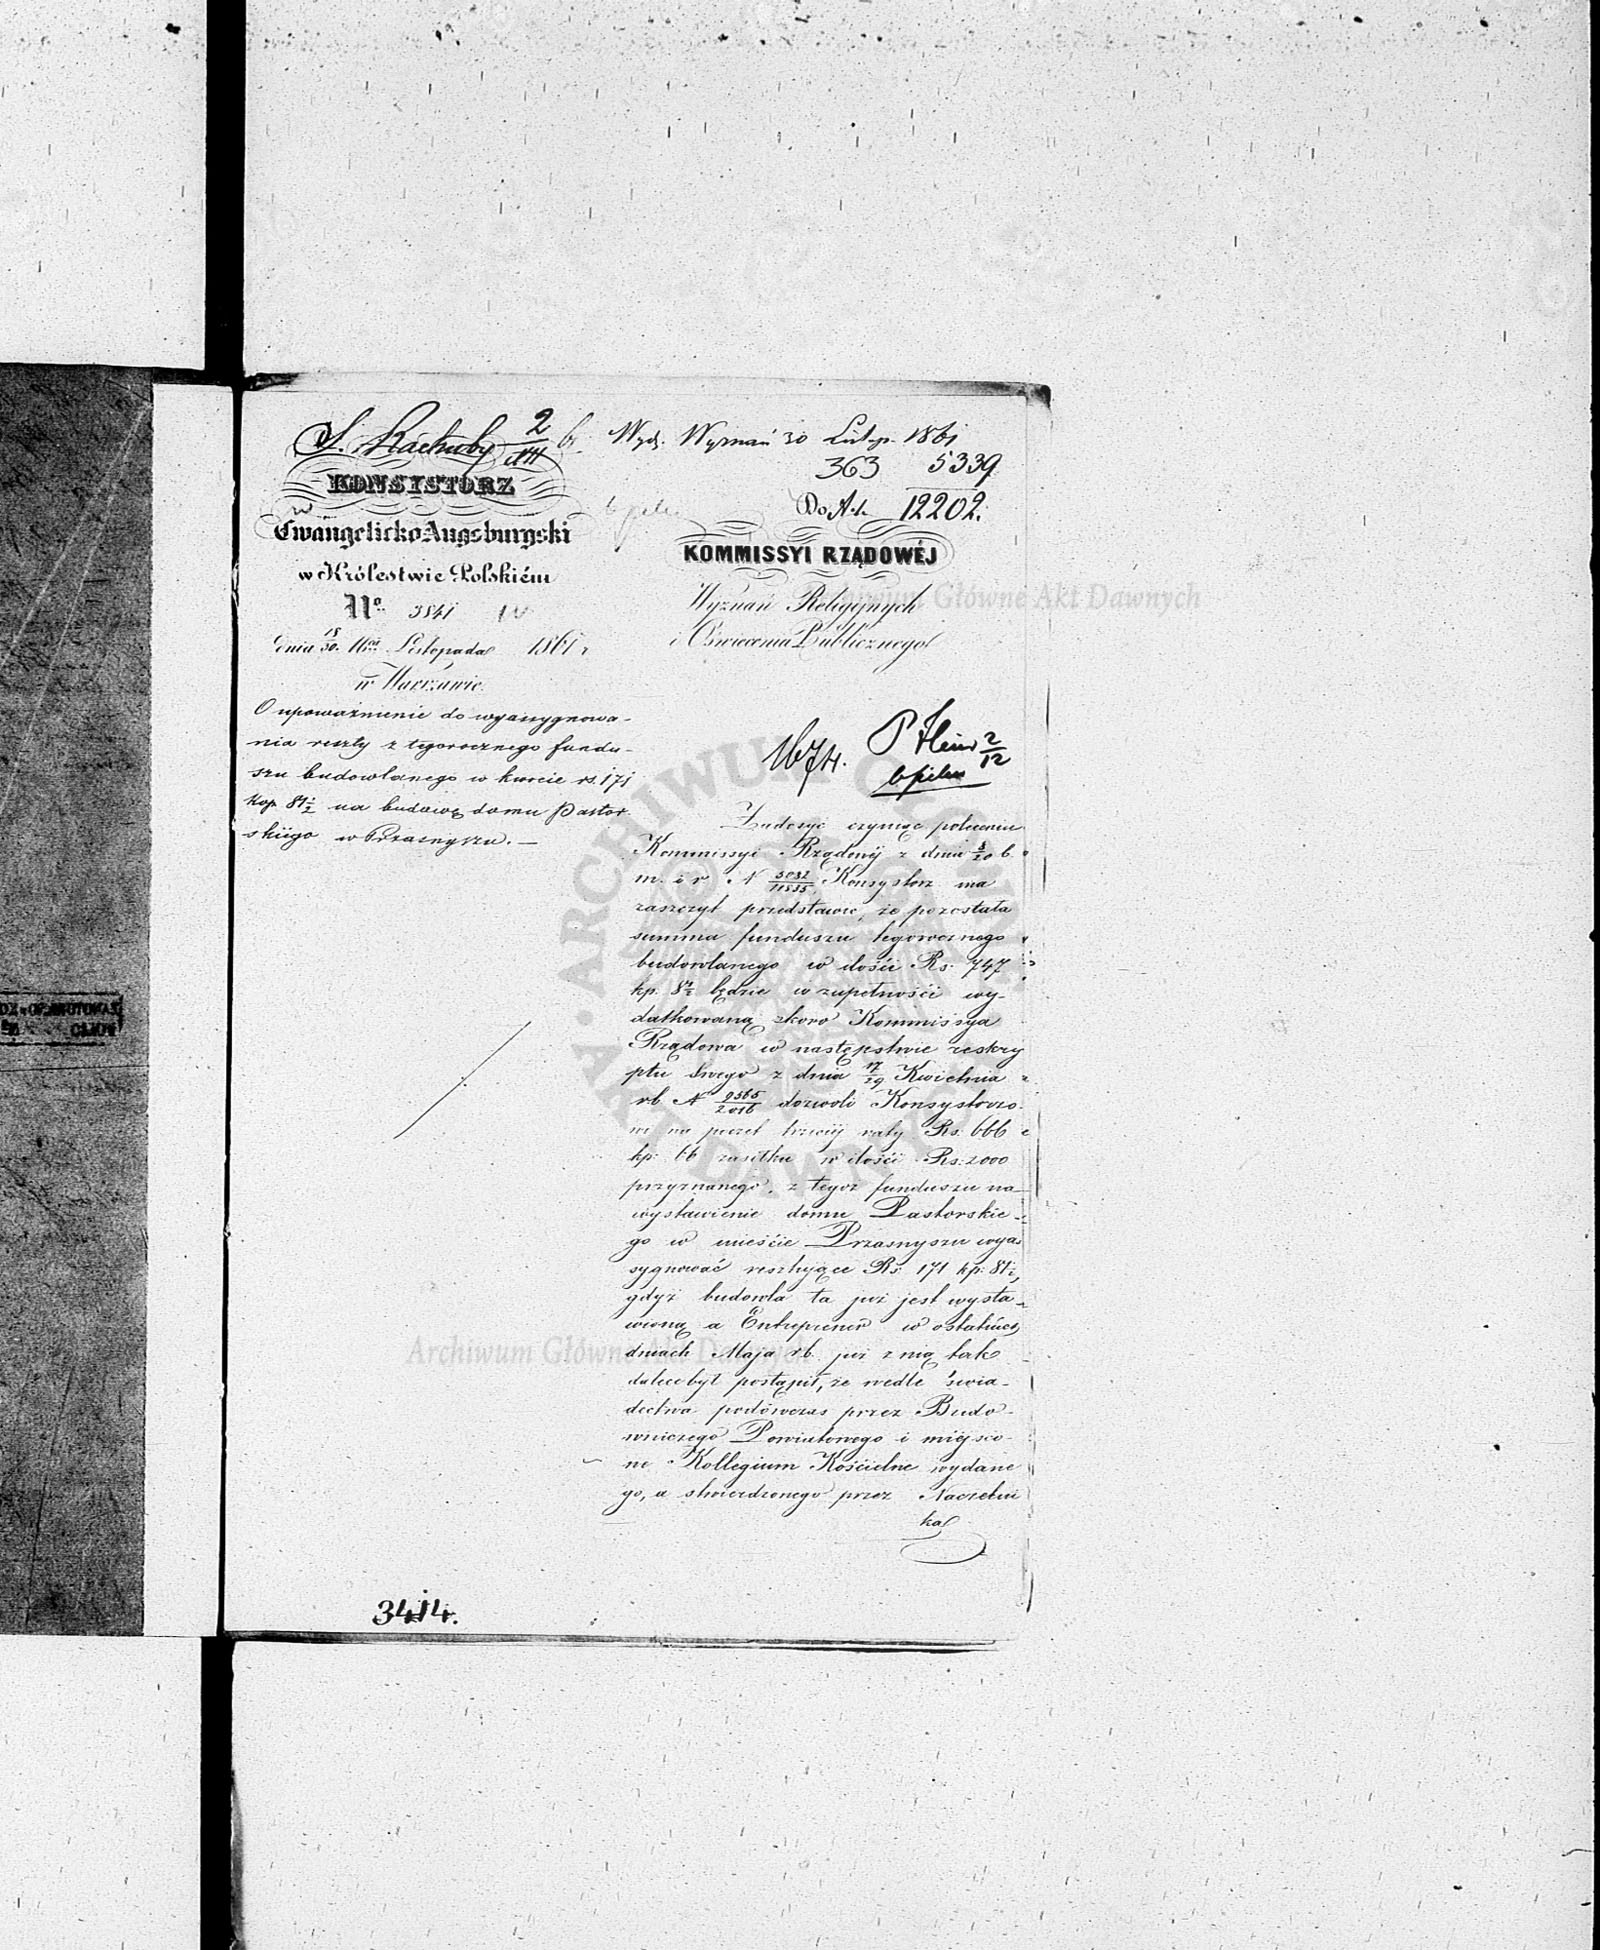 S. Rachuby 2/XII
Wydz. Wyznań 30 Listop. 1861
363 5339
Do Nr 12202.
KONSYSTORZ
Ewangelicko-Augsburgski
w Królestwie Polskiém
No. 3841
dnia 18/30. Listopada 1861 r
w Warszawie.
O upoważnienie do wyassygnowa-
nia reszty z tegorocznego fundu-
szu budowlanego w kwocie rs. 171
kop. 81 1/2 na budowę domu Pastor
skiego w Przasnyszu. —
KOMMISSYI RZĄDOWÉJ
Wyznań Religijnych
i Oświecenia Publicznego
1674.
2/12
Zadosyć czyniąc poleceniu
Kommissyi Rządowéj z dnia 8/20 b.
m. i r. N Konsystorz ma
zaszczyt przedstawić, że pozostała
summa funduszu tegorocznego
budowlanego w ilości Rs. 747
kp. będzie w zupełności wy-
datkowaną skoro Kommissya
Rządowa w następstwie reskry
ptu swego z dnia 17/29 Kwietnia
rb N dozwoli Konsystorzo-
wi na poczet trzeciéj raty Rs. 666
kp. 66 zasiłku w ilości Rs. 2000
przyznanego, z tegoż funduszu na
wystawienie domu Pastorskie-
go w mieście Przasnyszu wyas
sygnować resztujące Rs. 171 kp. 81 1/2,
gdyż budowla ta już jest wysta-
wioną a Entrepreneur w ostatnich
dniach Maja rb. już z nią tak
dalece był postąpił, że wedle świa-
dectwa podówczas przez Budo-
wniczego Powiatowego i miejsco-
we Kollegium Kościelne wydane
go, a stwierdzonego przez Naczelni
ka
3414.
Archiwum Główne Akt Dawnych
Archiwum Główne Akt Dawnych
ARCHIWUM GŁÓWNE
AKT DAWNYCH